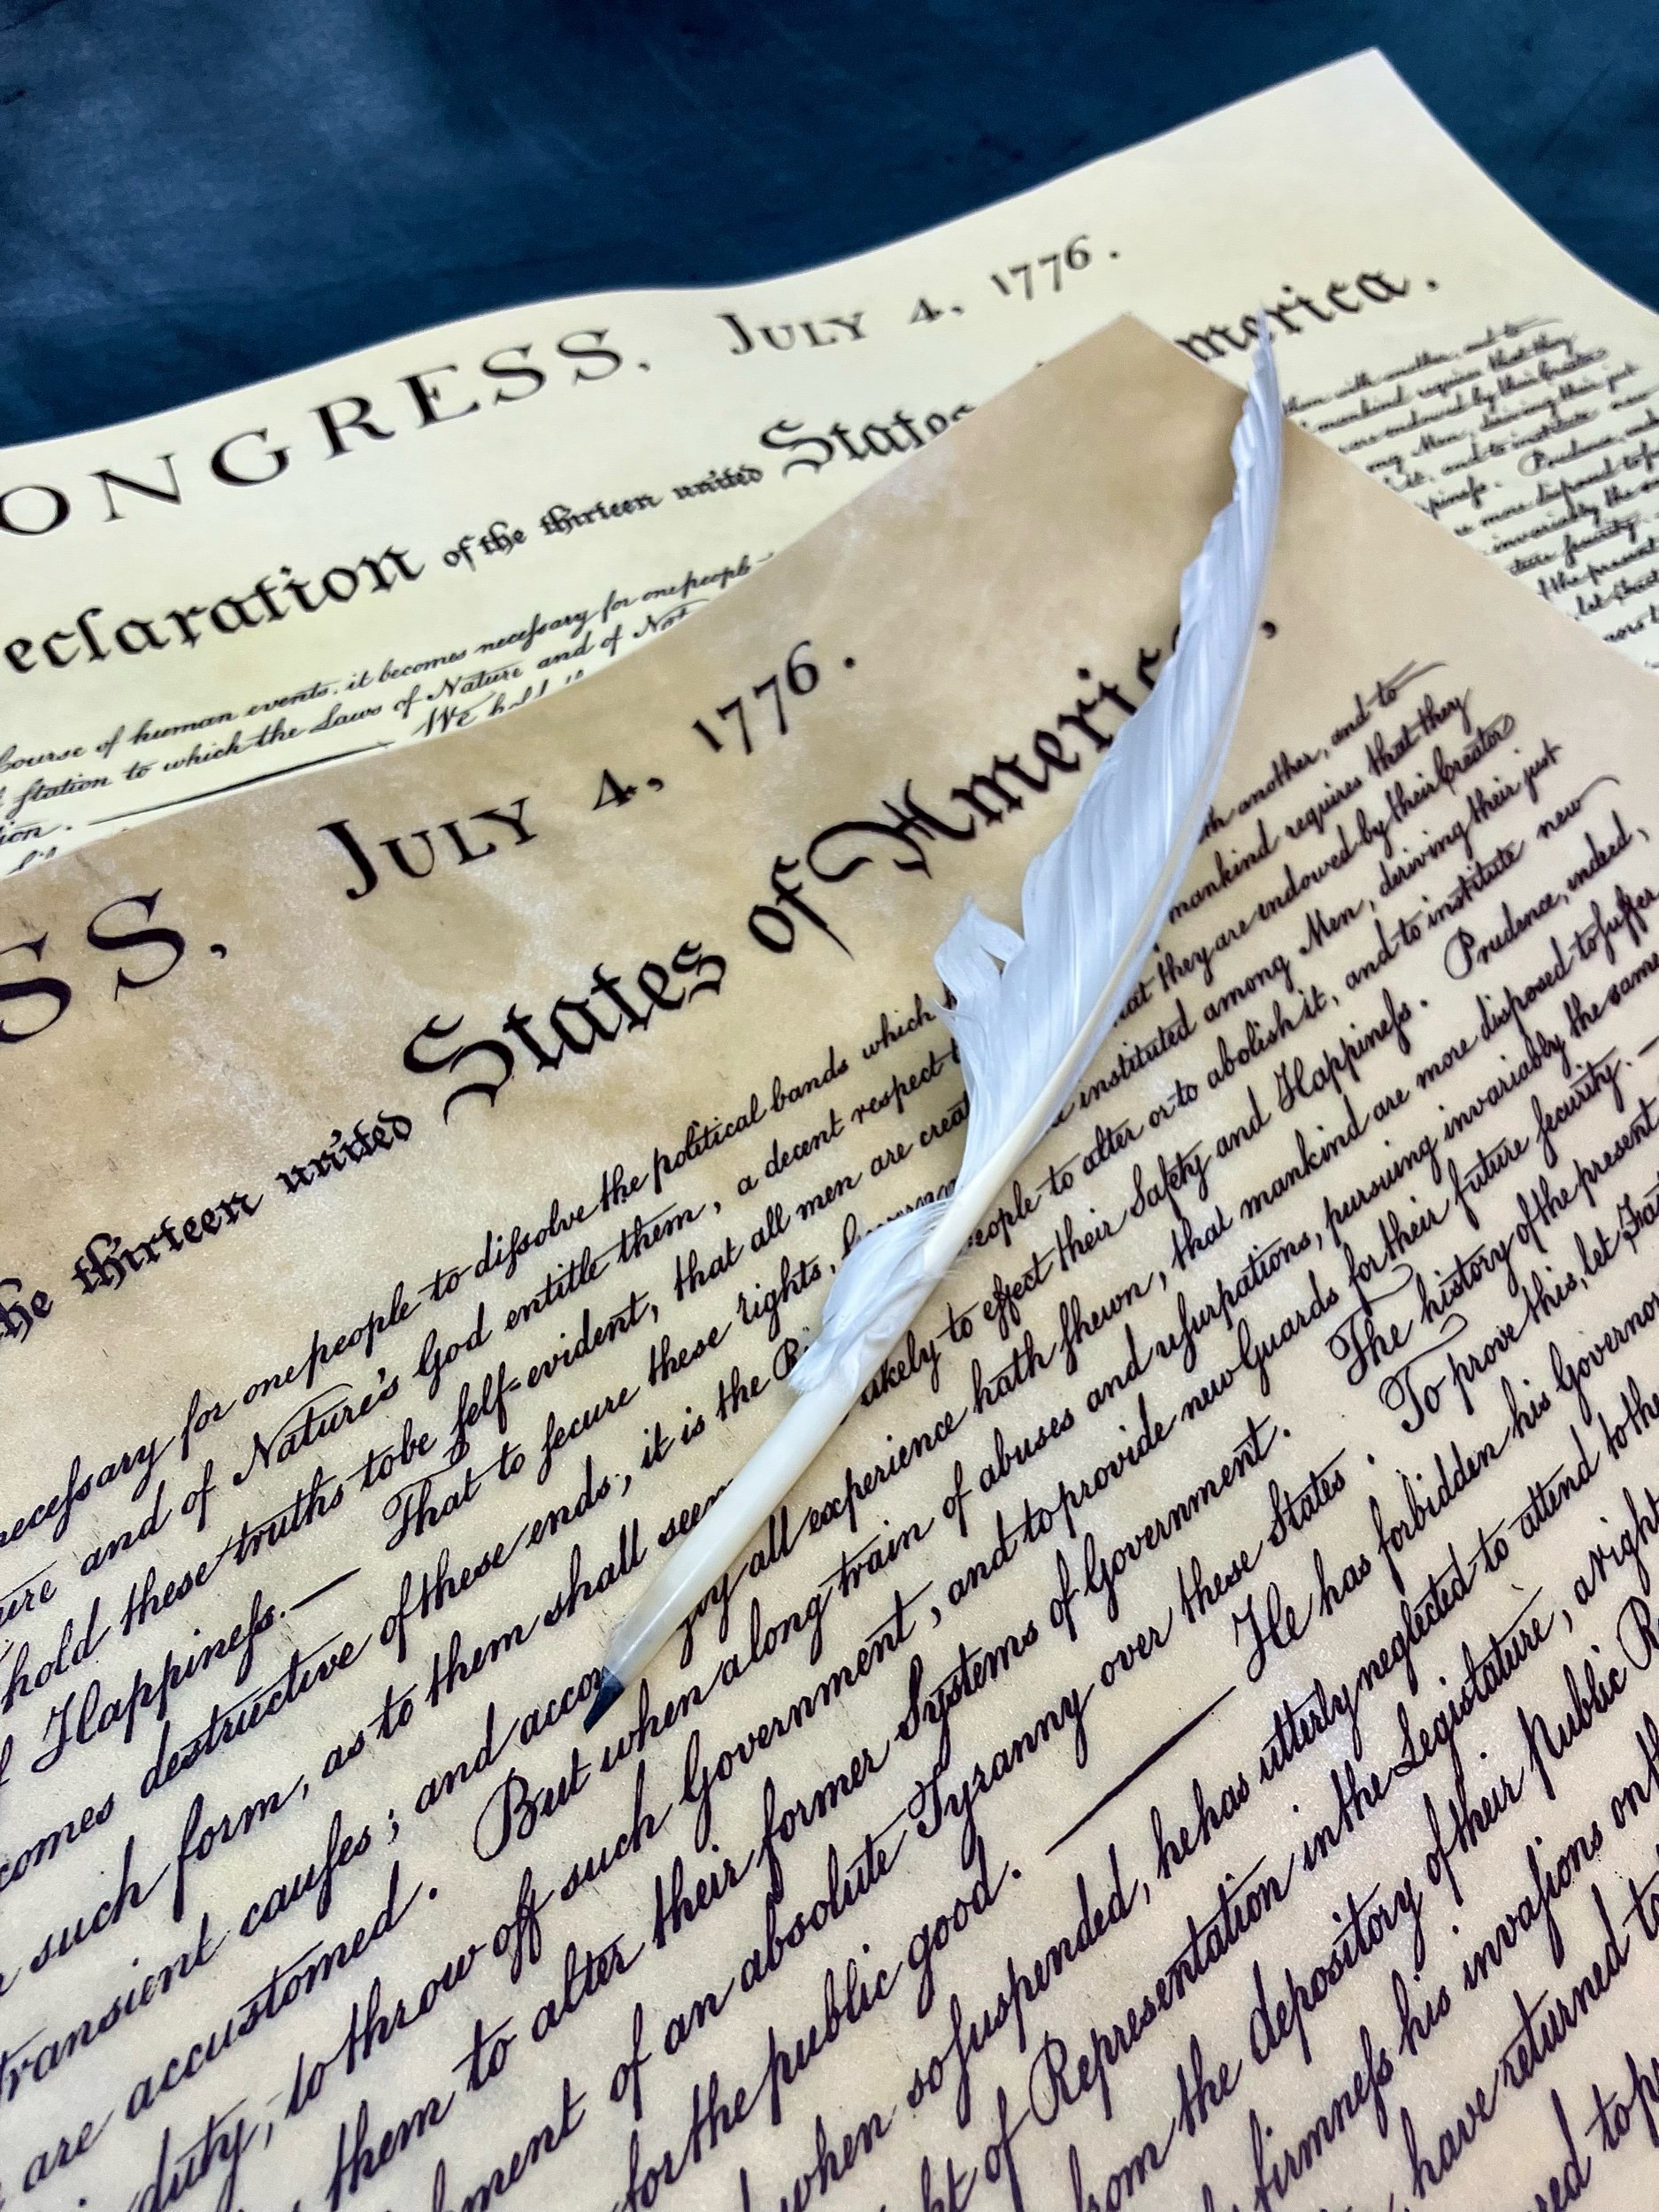 ONGRESS, JULY 4, 1776.
eclaration of the thirteen united States merica.
Course of human events, it becomes necessary for one people
station to which the Laws of Nature and of Nat
tion. We
then with another, and to
mankind requires that they
are endowed by their Creator
Men, deriving their just
it, and to institute new
piness. Prudence, inde
re more disposed to suf
invariably the sa
ture security.
f the present
let Fact
SS, JULY 4, 1776.
he thirteen united States of Americ
necessary for one people to dissolve the political bands which th another, and to
ure and of Nature's God entitle them, a decent respect t mankind requires that they
hold these truths to be self-evident, that all men are creat hat they are endowed by their Creator
f Happiness.— That to secure these rights, instituted among Men, deriving their just
comes destructive of these ends, it is the Ri eople to alter or to abolish it, and to institute new
such form, as to them shall seem likely to effect their Safety and Happiness. Prudence, indeed,
transient causes; and accor gly all experience hath shewn, that mankind are more disposed to suffer
are accustomed. But when a long train of abuses and usurpations, pursuing invariably the same
duty, to throw off such Government, and to provide new Guards for their future security.—
them to alter their former Systems of Government. The history of the present
ment of an absolute Tyranny over these States. To prove this, let Fac
for the public good. — He has forbidden his Governo
when so suspended, he has utterly neglected to attend to the
ht of Representation in the Legislature, a right
from the depository of their Public R
firmness his invasions on th
have returned to
sed to p